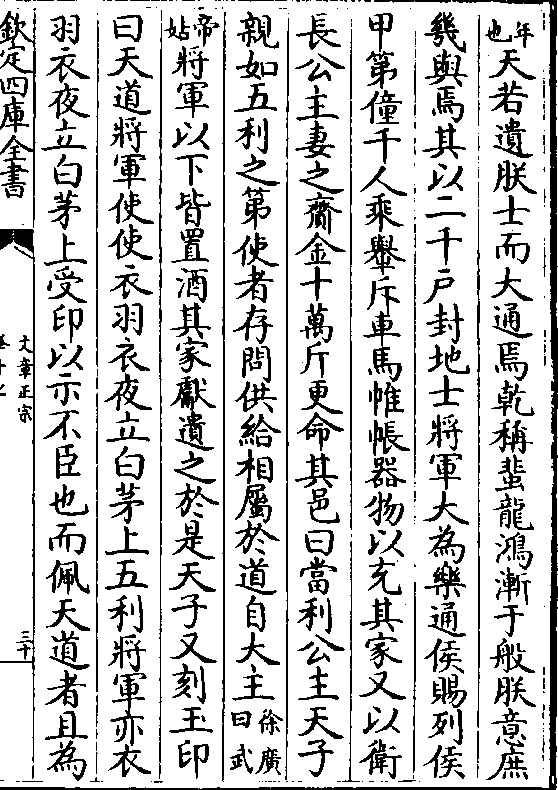 年也天若遺朕士而大通焉乾稱蜚龍鴻漸于般朕意庶
幾與焉其以二千戶封地士將軍大為樂通侯賜列侯
甲第僮千人乘轝斥車馬帷帳器物以充其家又以衛
長公主妻之齎金十萬斤更命其邑曰當利公主天子
親如五利之第使者存問供給相屬於道自大主徐廣曰武
帝姑將軍以下皆置酒其家獻遺之於是天子又刻玉印
曰天道將軍使使衣羽衣夜立白茅上五利將軍亦衣
羽衣夜立白茅上受印以示不臣也而佩天道者且為
欽定四庫全書
文章正宗
三十